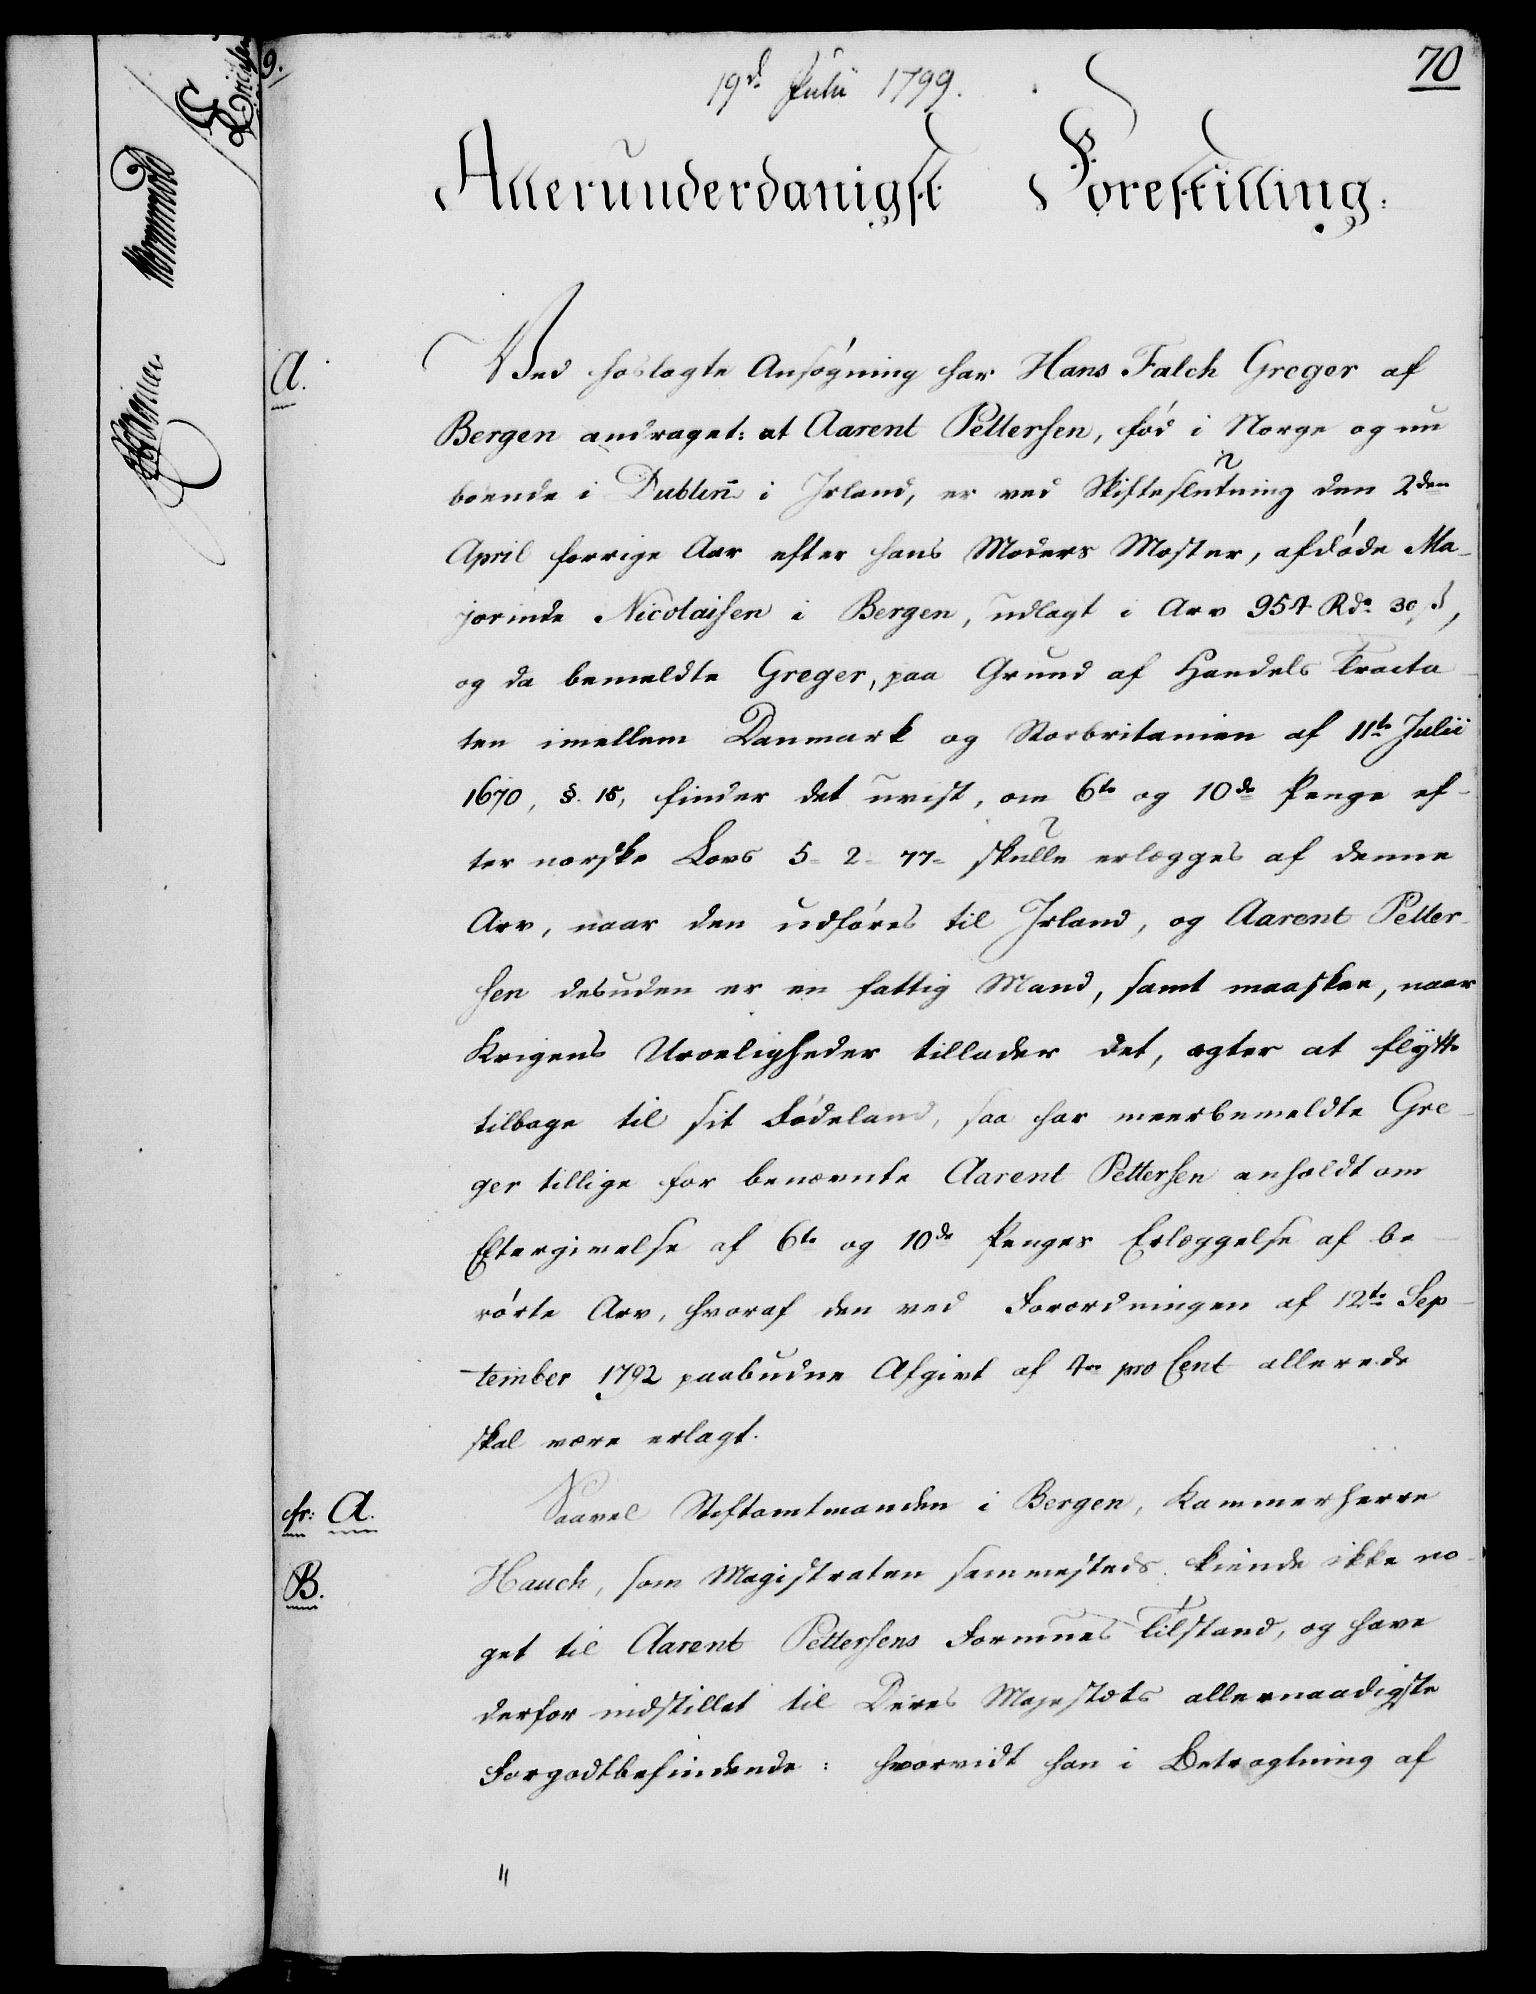 70
19de Julii 1799.
Allerunderdanigst Forestilling.
A.
Ved hoslagte Ansøgning har Hans Falch Greger af
Bergen andraget: at Aarent Pettersen, fød i Norge og nu
boende i Dublin i Irland, er ved Skifteslutning den 2den
April forrige Aar efter hans Moders Moster, afdøde Ma-
jorinde Nicolaisen i Bergen, udlagt i Arv 954 Rdr. 30 s,
og da bemeldte Greger, paa Grund af Handels Tracta-
ten imellem Danmark og Storbritanien af 11te Julii
1670, §. 15, finder det uvist, om 6te og 10de Penge ef-
ter norske Lovs 5-2-77- skulle erlægges af denne
Arv, naar den udføres til Irland, og Aarent Petter-
sen desuden er en fattig Mand, samt maaskee, naar
Krigens Uroeligheder tillader det, agter at flytte
tilbage til sit Fødeland, saa har meerbemeldte Gre-
ger tillige for benævnte Aarent Pettersen anholdt om
Eftergivelse af 6te og 10de Penges Erlæggelse af be-
rørte Arv, hvoraf den ved Forordningen af 12te Sep-
tember 1792 paabudne Afgivt af 4re pro Cent allerede
skal være erlagt.
cfr: A.
Saavel Stiftamtmanden i Bergen, Kammerherre
B.
Hauch, som Magistraten sammesteds kiende ikke no-
get til Aarent Pettersens Formues Tilstand, og have
derfor indstillet til Deres Majestæts allernaadigste
Forgodtbefindende: hvorvidt han i Betragtning af